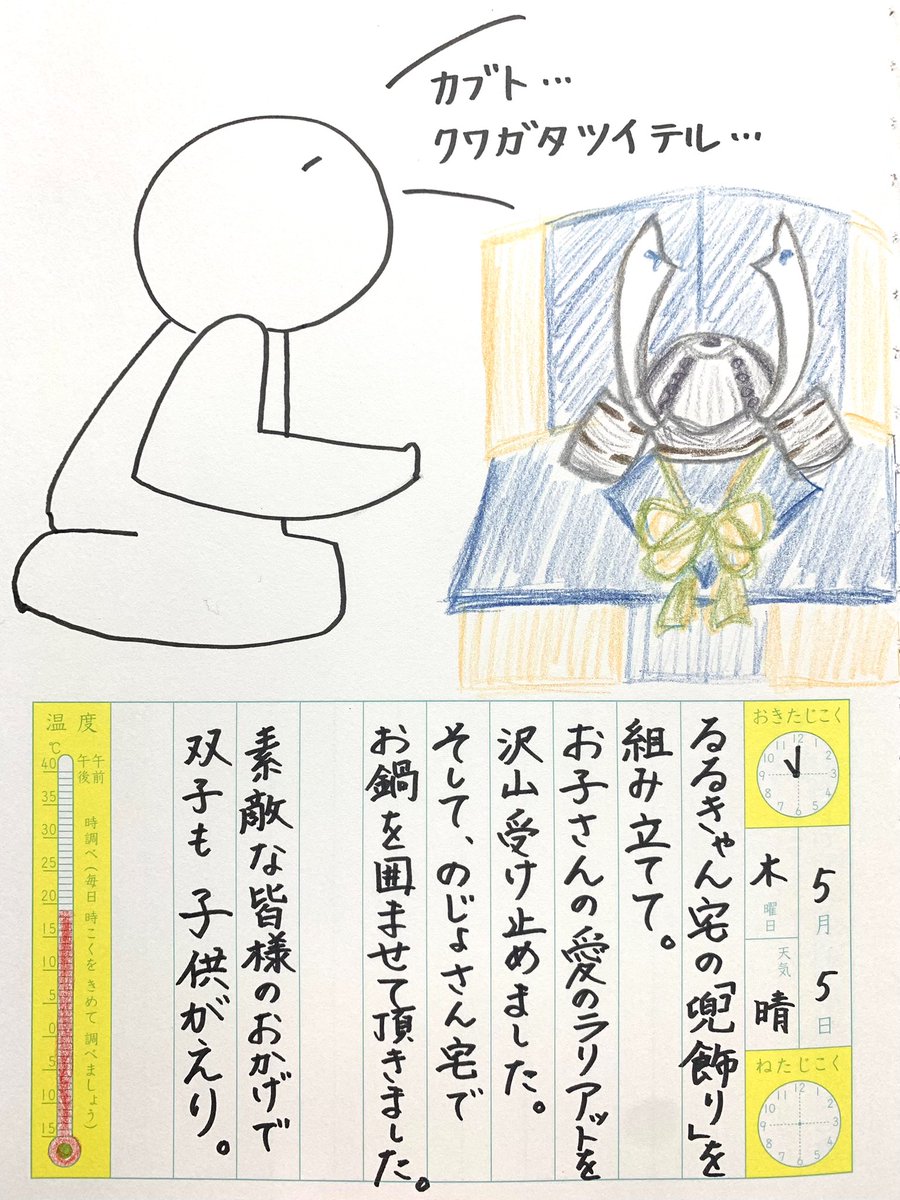 カブト…
クワガタツイテル…
おきたじこく
12 1 2 3 4 5 6 7 8 9 10 11
5月5日
木曜日
天気 晴
ねたじこく
12 1 2 3 4 5 6 7 8 9 10 11
るるきゃん宅の「兜飾り」を
組み立てて。
お子さんの愛のラリアットを
沢山受け止めました。
そして、のじょさん宅で
お鍋を囲ませて頂きました。
素敵な皆様のおかげで
双子も子供がえり。
温度
℃
午前
午後
時調べ(毎日 時こくを きめて 調べましょう)
40
35
30
25
20
15
10
5
0
5
10
15